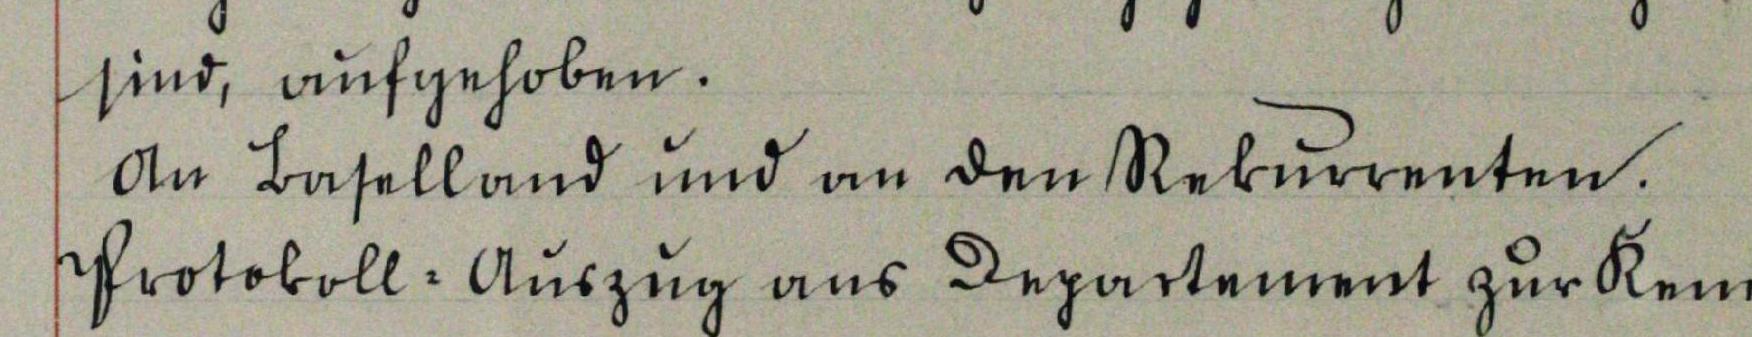 sind, aufgehoben.
An Baselland und an den Rekurrenten.
Protokoll-Auszug ans Departement zur Ken